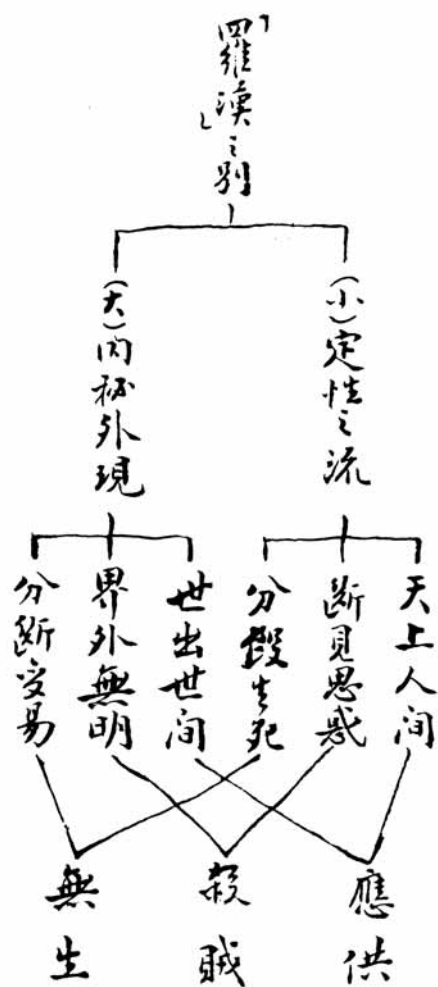 「羅漢」之別
(小)定性之流
(大)内秘外現
天上人间
斷見思惑
分段生死
世出世间
界外無明
分斷变易
應供
殺賊
無生